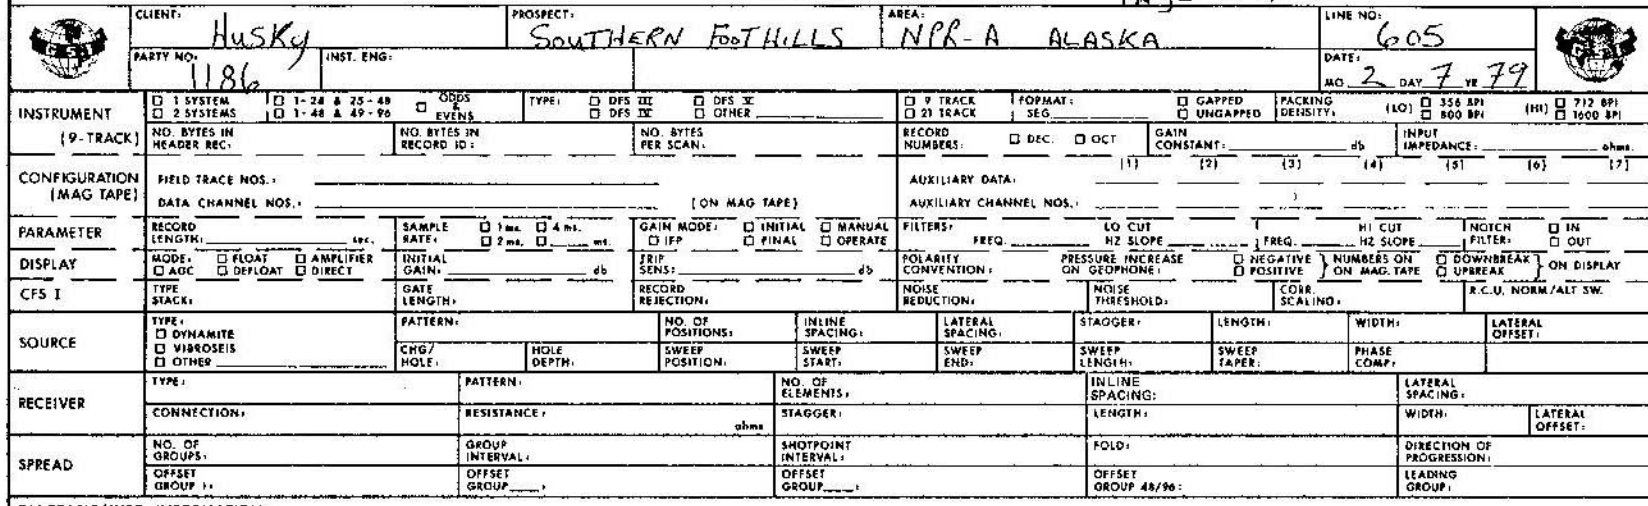 CLIENT: HUSKY PROSPECT: SOUTHERN FOOTHILLS AREA: NPR-A ALASKA LINE NO: 605
PARTY NO: 1186 INST. ENG: DATE: MO 2 DAY 7 YR 79
GSI GSI
INSTRUMENT (9-TRACK) □ 1 SYSTEM □ 1-24 & 25-48 □ ODDS & EVENS TYPE: □ DFS III □ DFS V □ 9 TRACK FORMAT: □ GAPPED PACKING DENSITY: (LO) □ 356 BPI (HI) □ 712 BPI
□ 2 SYSTEMS □ 1-48 & 49-96 □ DFS IV □ OTHER □ 21 TRACK SEG □ UNGAPPED □ 800 BPI □ 1600 BPI
NO. BYTES IN HEADER REC: NO. BYTES IN RECORD ID: NO. BYTES PER SCAN: RECORD NUMBERS: □ DEC. □ OCT GAIN CONSTANT: db INPUT IMPEDANCE: ohms.
CONFIGURATION (MAG TAPE) FIELD TRACE NOS.: AUXILIARY DATA: (1) (2) (3) (4) (5) (6) (7)
DATA CHANNEL NOS.: (ON MAG TAPE) AUXILIARY CHANNEL NOS.:
PARAMETER RECORD LENGTH: sec. SAMPLE RATE: □ 1 ms. □ 4 ms. □ 2 ms. □ ms. GAIN MODE: □ INITIAL □ MANUAL □ IFP □ FINAL □ OPERATE FILTERS: FREQ. LO CUT HZ SLOPE FREQ. HI CUT HZ SLOPE NOTCH FILTER: □ IN □ OUT
DISPLAY MODE: □ FLOAT □ AMPLIFIER □ AGC □ DEFLOAT □ DIRECT INITIAL GAIN: db TRIP SENS: db POLARITY CONVENTION: PRESSURE INCREASE ON GEOPHONE: □ NEGATIVE □ POSITIVE } NUMBERS ON ON MAG. TAPE □ DOWNBREAK □ UPBREAK } ON DISPLAY
CFS I TYPE STACK: GATE LENGTH: RECORD REJECTION: NOISE REDUCTION: NOISE THRESHOLD: CORR. SCALING: R.C.U. NORM/ALT SW.
SOURCE TYPE: □ DYNAMITE □ VIBROSEIS □ OTHER PATTERN: NO. OF POSITIONS: INLINE SPACING: LATERAL SPACING: STAGGER: LENGTH: WIDTH: LATERAL OFFSET:
CHG/HOLE: HOLE DEPTH: SWEEP POSITION: SWEEP START: SWEEP END: SWEEP LENGTH: SWEEP TAPER: PHASE COMP:
RECEIVER TYPE: PATTERN: NO. OF ELEMENTS: INLINE SPACING: LATERAL SPACING:
CONNECTION: RESISTANCE: ohms STAGGER: LENGTH: WIDTH: LATERAL OFFSET:
SPREAD NO. OF GROUPS: GROUP INTERVAL: SHOTPOINT INTERVAL: FOLD: DIRECTION OF PROGRESSION:
OFFSET GROUP 1: OFFSET GROUP : OFFSET GROUP : OFFSET GROUP 48/96: LEADING GROUP: